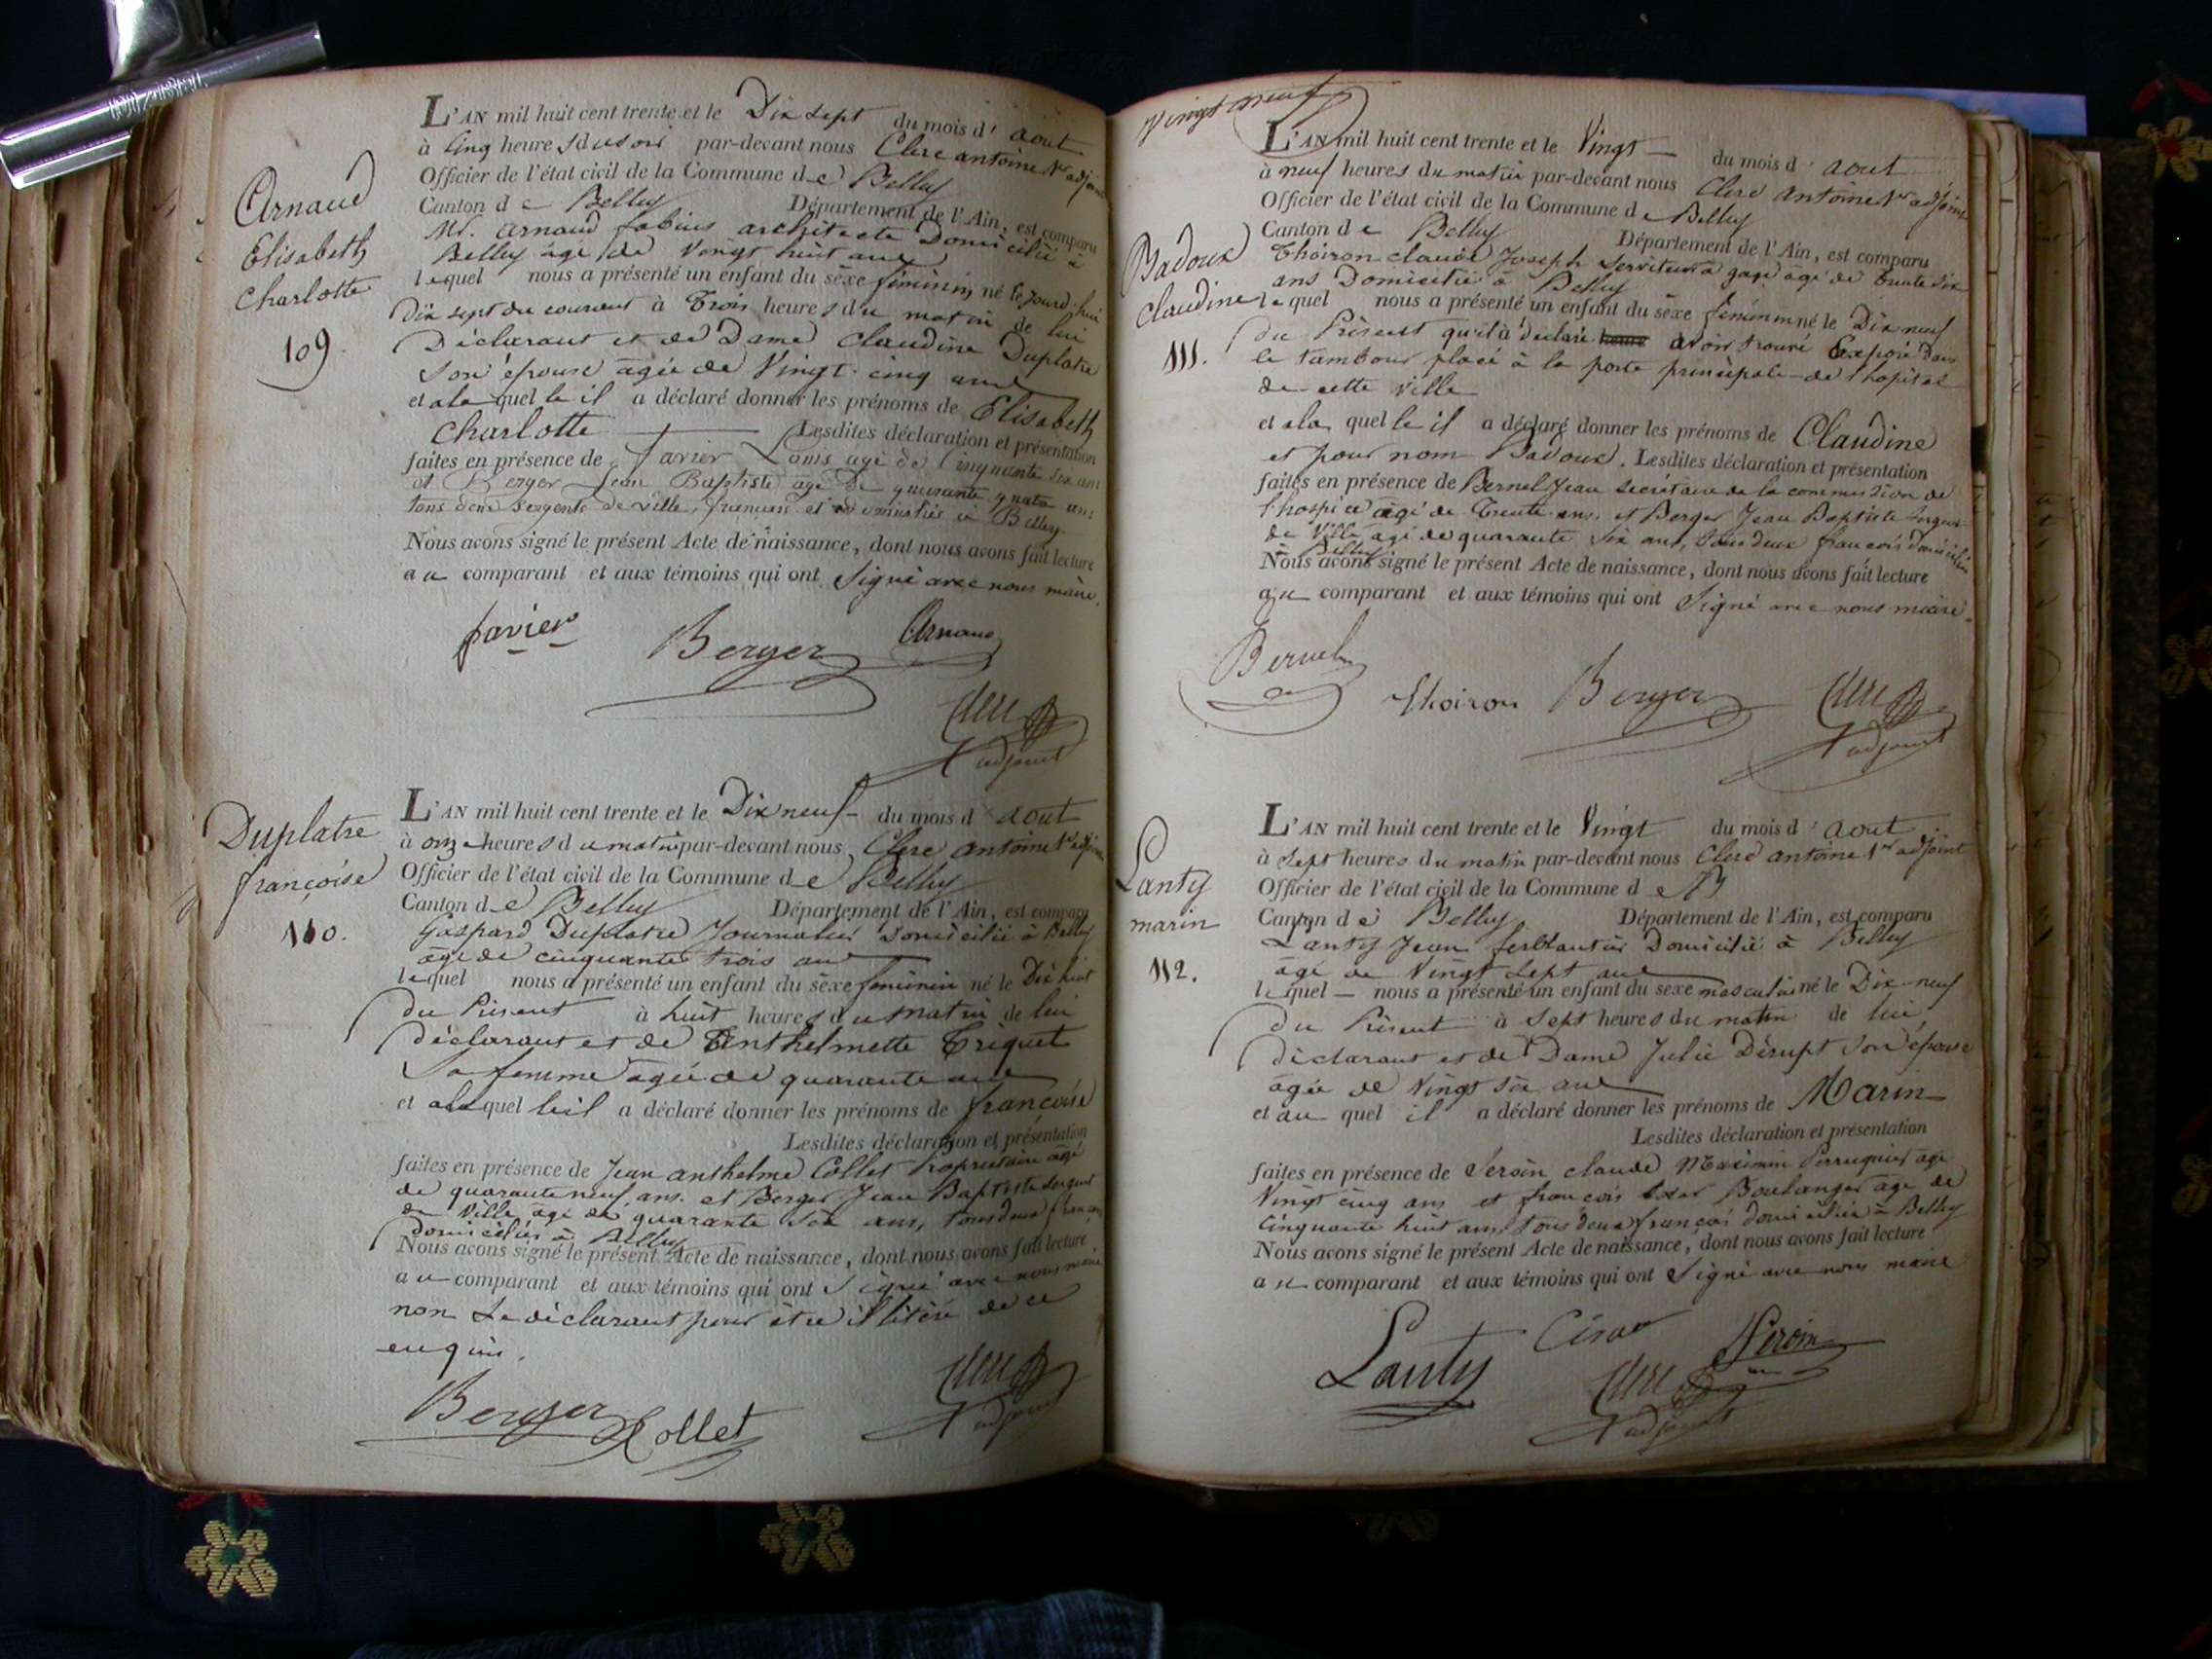 Arnaud
Elisabeth
Charlotte
109
L'AN mil huit cent trente et le Dix sept du mois d'aout
à Cinq heures du soir par-devant nous Clerc antoine 1er adjoint
Officier de l'état civil de la Commune de Belley
Canton de Belley Département de l'Ain, est comparu
Mr. arnaud fabius architecte Domicilié à
Belley agé de Vingt huit ans
lequel nous a présenté un enfant du sèxe féminin, né le jourd'hui
Dix sept du courant à Trois heures du matin de lui
Déclarant et de Dame Claudine Duplatre
son épouse agée de Vingt-cinq ans
et a la quelle il a déclaré donner les prénoms de Elisabeth
Charlotte Lesdites déclaration et présentation
faites en présence de favier Louis agé de Cinquante six ans
et Berger Jean Baptiste agé de quarante quatre ans
tous deux sergents de ville, français et domiciliés à Belley.
Nous avons signé le présent Acte de naissance, dont nous avons fait lecture
au comparant et aux témoins qui ont signé avec nous maire.
favier Berger Arnaud
Clerc
1er adjoint
Duplatre
françoise
110.
L'AN mil huit cent trente et le Dix neuf du mois d'aout
à onze heures du matin par-devant nous Clerc antoine 1er adjoint
Officier de l'état civil de la Commune de Belley
Canton de Belley Département de l'Ain, est comparu
Gaspard Duplatre Journalier Domicilié à Belley
âgé de cinquante trois ans
lequel nous a présenté un enfant du sèxe féminin né le Dix huit
du Présent à huit heures du matin de lui
déclarant et de Anthelmette Triquet
Sa femme agée de quarante ans
et a la quelle il a déclaré donner les prénoms de françoise
Lesdites déclaration et présentation
faites en présence de Jean anthelme Collet Propriétaire agé
de quarante neuf ans. et Berger Jean Baptiste sergent
de Ville agé de quarante six ans, tous deux français
domiciliés à Belley
Nous avons signé le présent Acte de naissance, dont nous avons fait lecture
au comparant et aux témoins qui ont signé avec nous maire
non Le déclarant pour être illitéré de ce
enquis.
Berger Collet
Clerc
1er adjoint
Vingt neuf
Badoux
Claudine
111.
L'AN mil huit cent trente et le Vingt du mois d'aout
à neuf heures du matin par-devant nous Clerc antoine 1er adjoint
Officier de l'état civil de la Commune de Belley
Canton de Belley Département de l'Ain, est comparu
Thoiron claude Joseph serviteur à gage âgé de trente six
ans Domicilié à Belley
lequel nous a présenté un enfant du sèxe féminin né le Dix neuf
du Présent qu'il à déclaré avoir trouvé Exposé Dans
le tambour placé à la porte principale de l'hopital
de cette ville
et a la quelle il a déclaré donner les prénoms de Claudine
et pour nom Badoux. Lesdites déclaration et présentation
faites en présence de Bernel Jean secrétaire de la commission de
l'hospice âgé de Trente ans, et Berger Jean Baptiste sergent
de Ville agé de quarante six ans, tous deux français domiciliés
à Belley
Nous avons signé le présent Acte de naissance, dont nous avons fait lecture
au comparant et aux témoins qui ont signé avec nous maire.
Bernel Thoiron Berger Clerc
1er adjoint
Lanty
marin
112.
L'AN mil huit cent trente et le Vingt du mois d'aout
à Sept heures du matin par-devant nous Clerc antoine 1er adjoint
Officier de l'état civil de la Commune de By
Canton de Belley Département de l'Ain, est comparu
Lanty Jean ferblantier Domicilié à Belley
âgé de Vingt sept ans
lequel nous a présenté un enfant du sexe masculin né le Dix-neuf
du Présent à Sept heures du matin de lui
déclarant et de Dame Julie Dérupt son épouse
agée de Vingt six ans
et au quel il a déclaré donner les prénoms de Marin
Lesdites déclaration et présentation
faites en présence de Claude Maximin Perruquier agé
Vingt cinq ans et françois Boulanger agé de
Cinquante huit ans, tous deux français domiciliés à Belley
Nous avons signé le présent Acte de naissance, dont nous avons fait lecture
au comparant et aux témoins qui ont signé avec nous maire
Lanty
Clerc
1er adjoint